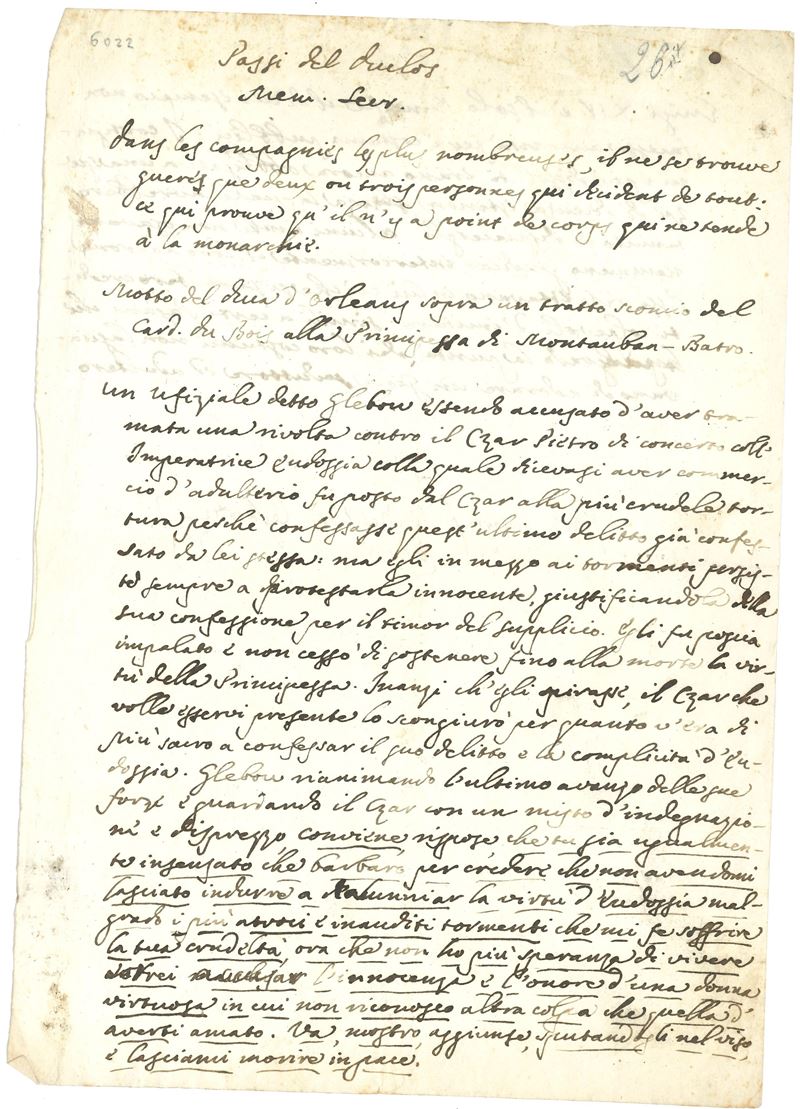 6022
26
Passi del Duclos
Mem. Secr.
Dans les compagnies les plus nombreuses, il ne se trouve
gueres que deux ou trois personnes qui decident de tout:
ce qui prouve qu'il n'y a point de corps qui ne tende
à la monarchie.
Motto del Duca d'Orleans sopra un tratto sconcio del
Card. du Bois alla Principessa di Montauban-Batro.
Un Ufiziale detto Glebou essendo accusato d'aver tra-
mata una rivolta contro il Czar Pietro di concerto coll'
Imperatrice Eudossia colla quale dicevasi aver commer-
cio d'adulterio fu posto dal Czar alla più crudele tor-
tura perchè confessasse quest'ultimo delitto già confes-
sato da lei stessa: ma egli in mezzo ai tormenti persis-
tè sempre a protestarla innocente, giustificandola della
sua confessione per il timor del supplicio. Egli fu poscia
impalato e non cessò di sostenere fino alla morte la vir-
tù della Principessa. Inanzi ch'egli spirasse, il Czar che
volle esservi presente lo scongiurò per quanto v'era di
più sacro a confessar il suo delitto e la complicità d'Eu-
dossia. Glebou rianimando l'ultimo avanzo delle sue
forze e guardando il Czar con un misto d'indegnazio-
ne e disprezzo conviene rispose che tu sia ugualmen-
te insensato che barbaro per credere che non avendomi
lasciato indurre a calunniar la virtù d'Eudossia mal-
grado i più atroci e inauditi tormenti che mi fe soffrire
la tua crudeltà, ora che non ho più speranza di vivere
l'innocenza e l'onore d'una donna
virtuosa in cui non riconosco altra colpa che quella d'
averti amato. Va, mostro, aggiunse, sputandogli nel viso,
e lasciami morire in pace.